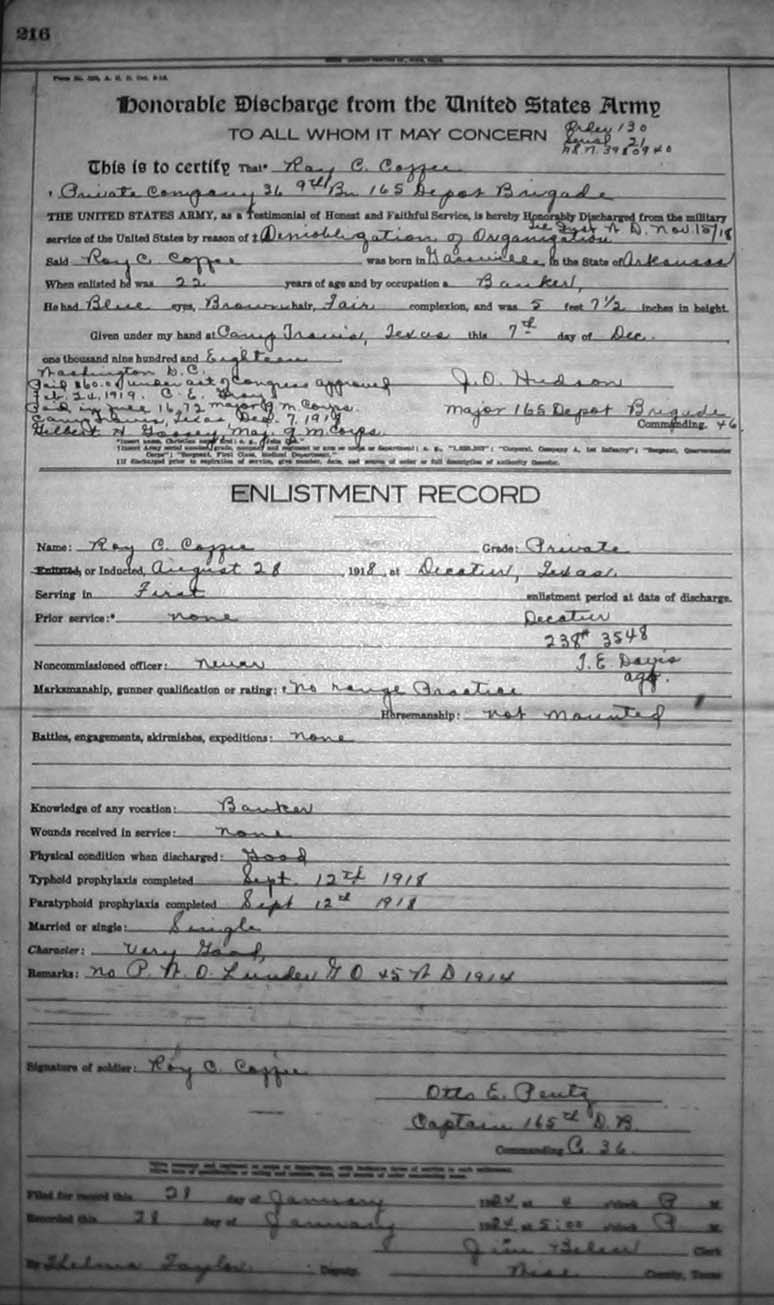 216
Honorable Discharge from the United States Army
TO ALL WHOM IT MAY CONCERN
Order 130
Serial 21
3980940
This is to certify That* Roy C. Coffee
Private Company 36 9th Bn 165 Depot Brigade
THE UNITED STATES ARMY, as a Testimonial of Honest and Faithful Service, is hereby Honorably Discharged from the military
W D. Nov. 15/18
service of the United States by reason of ‡ of Organization
Said Roy C. Coffee was born in Gassville, in the State of Arkansas
When enlisted he was 22 years of age and by occupation a Banker,
He had Blue eyes, Brown hair, Fair complexion, and was 5 feet 7 1/2 inches in height.
Given under my hand at Camp Travis, Texas this 7th day of Dec.
one thousand nine hundred and Eighteen
Washington D.C.
Paid $60.00 under act of Congress approved
Feb. 24, 1919. C. E. Gray
Paid in full 16.72 major Q M Corps.
Camp Travis, Texas Dec. 7, 191
Gilbert H Maj. Q M Corps.
J. O. Hudson
Major 165 Depot Brigade
Commanding. 46
*Insert name, Christian name first; e. g., "John Doe."
‡If discharged prior to expiration of service, give number, date, and source of order or full description of authority therefor.
ENLISTMENT RECORD
Name: Roy C. Coffee Grade: Private
Enlisted, or Inducted, August 28, 1918, at Decatur, Texas.
Serving in First enlistment period at date of discharge.
Prior service:* none Decatur
238 3548
Noncommissioned officer: never J. E. Davis
agt.
Marksmanship, gunner qualification or rating: † No range Practice
Horsemanship: not mounted
Battles, engagements, skirmishes, expeditions: none
Knowledge of any vocation: Banker
Wounds received in service: none
Physical condition when discharged: Good
Typhoid prophylaxis completed Sept. 12th 1918
Paratyphoid prophylaxis completed Sept 12th 1918
Married or single: Single
Character: Very Good,
Remarks: no A. W. O. L under G O 45 W D 1914
Signature of soldier: Roy C. Coffee
Otto E. Pentz
Captain 165th D.B.
Commanding C 36
Filed for record this 28 day of January 1924 at 4 o'clock P M.
Recorded this 28 day of January 1924 at 5:00 o'clock P M.
Jim Clerk
By Thelma Taylor Deputy. Wise County, Texas